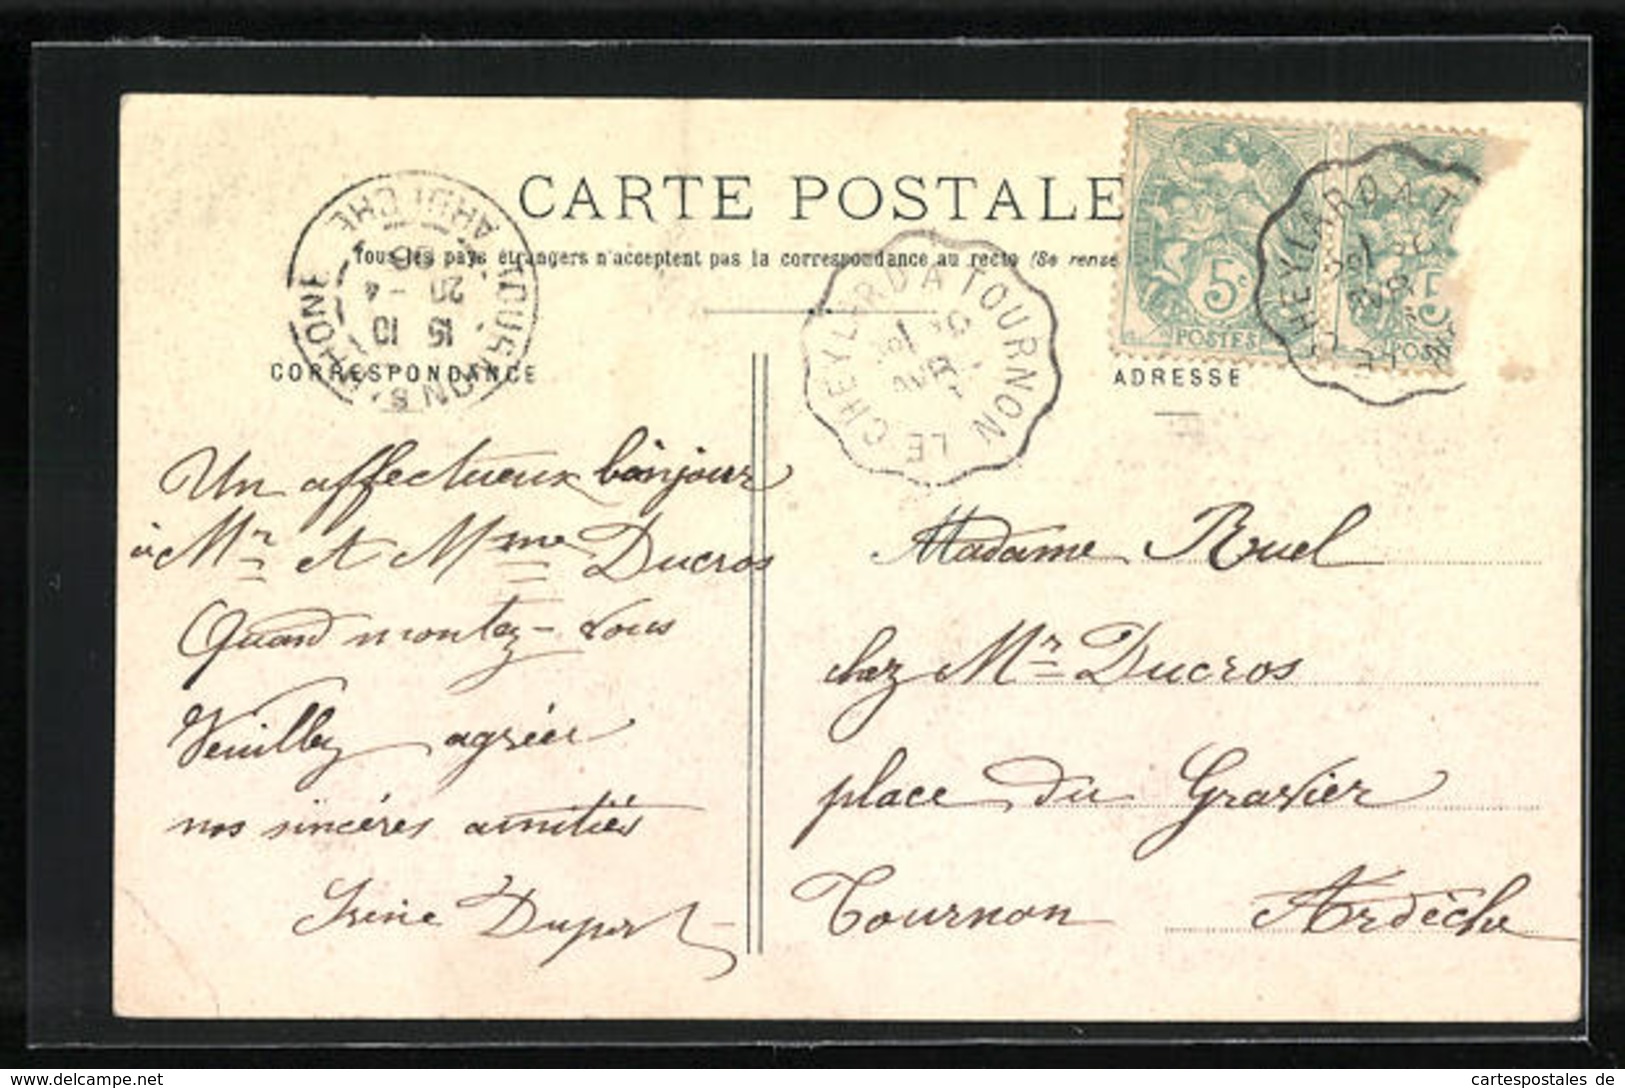 CARTE POSTALE
Tous les pays étrangers n'acceptent pas la correspondance au recto (Se rense
CORRESPONDANCE
ADRESSE
TOURNON S/ RHONE
ARDECHE
15 10
20 - 4
06
LE CHEYLARD A TOURNON
AVR
5c
POSTES
HEYLARD A T
AVR
5
POS
Un affectueux bonjour
à Mr et Mme Ducros
Quand montez-vous
Veuillez agréer
nos sincéres amitiés
Irène
Madame Ruel
chez Mr Ducros
place du Gravier
Tournon Ardèche
www.cartespostales.de
cartespostales de